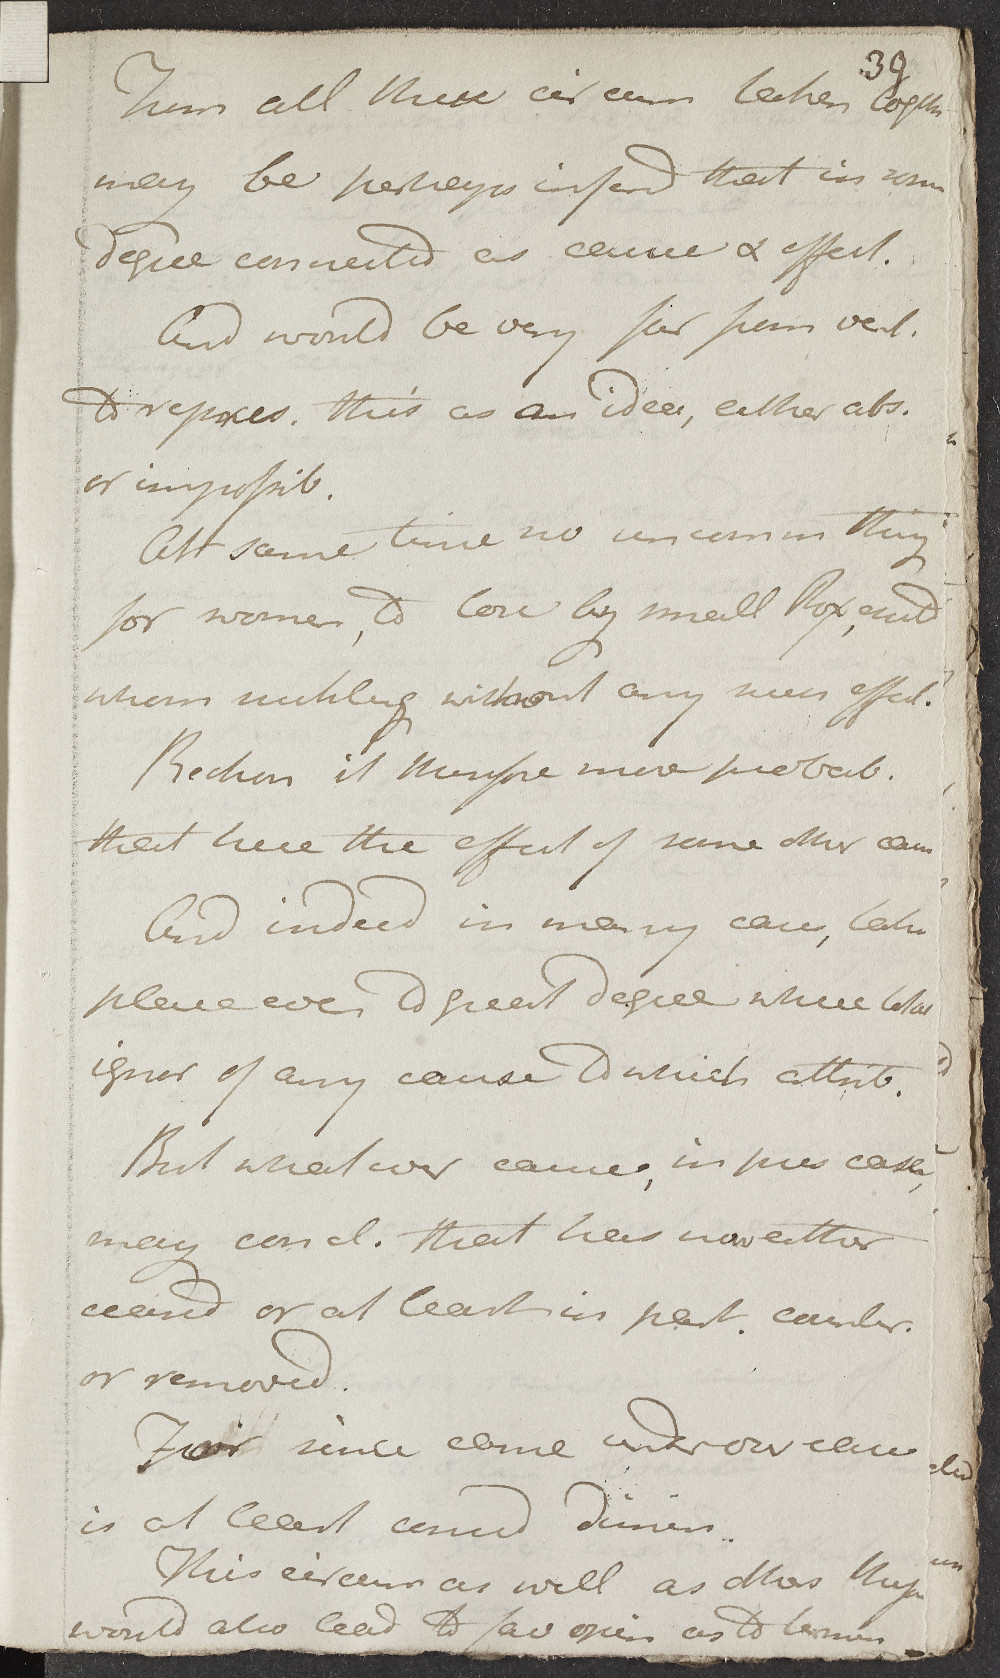 39
From all these circum taken togeth
may be perhaps inferd that in som
degree connected as cause & effect.
And would be very far from vent.
to repres. this as an idea, either abs.
or impossib.
At same time no uncomm thing
for women, to lose by small Pox, and
whom suckling without any such effect.
Reckon it therefore more probab.
that here the effect of some other caus
And indeed in many cases, take
place even to great degree where totas
ignor of any cause to which attrib.
But whatever cause, in pres case,
may concl. that has now either
ceasd or at least in part. counter.
or removed.
For since came under our care
is at least consid dimin.
This circum as well as others
would also lead to fav opin as to termin